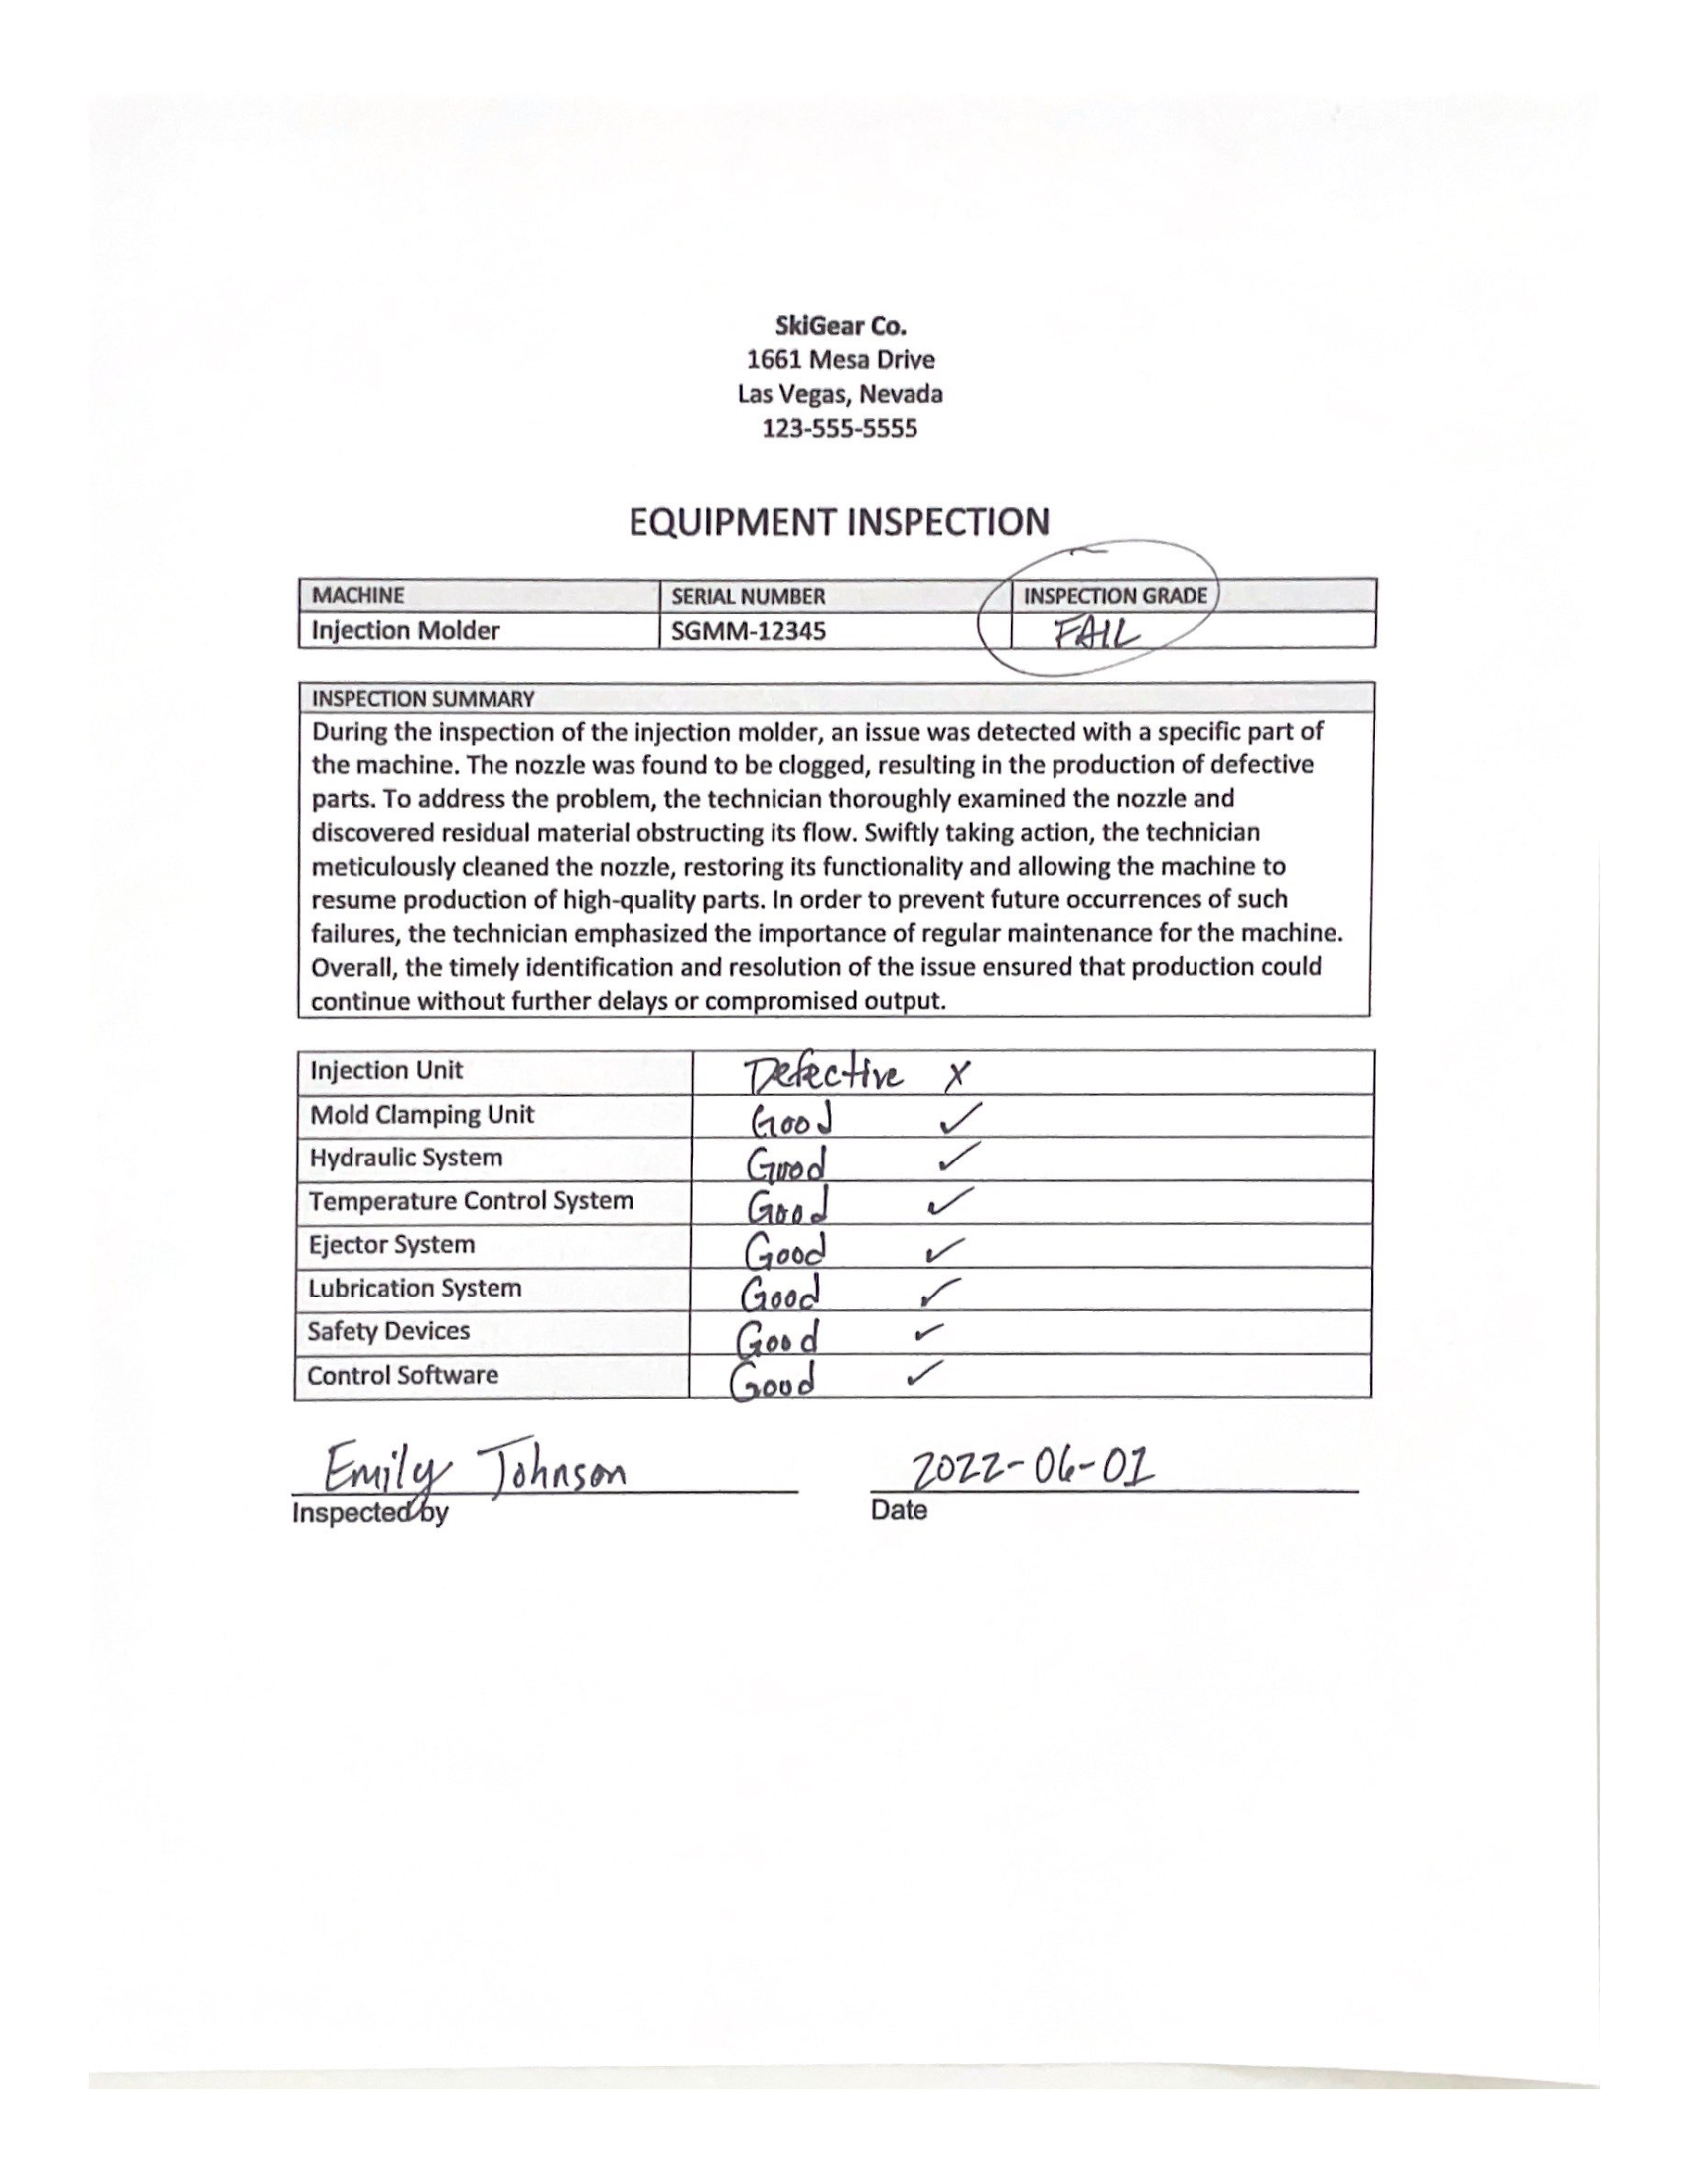 SkiGear Co.
1661 Mesa Drive
Las Vegas, Nevada
123-555-5555
EQUIPMENT INSPECTION
MACHINE SERIAL NUMBER INSPECTION GRADE
Injection Molder SGMM-12345 FAIL
INSPECTION SUMMARY
During the inspection of the injection molder, an issue was detected with a specific part of
the machine. The nozzle was found to be clogged, resulting in the production of defective
parts. To address the problem, the technician thoroughly examined the nozzle and
discovered residual material obstructing its flow. Swiftly taking action, the technician
meticulously cleaned the nozzle, restoring its functionality and allowing the machine to
resume production of high-quality parts. In order to prevent future occurrences of such
failures, the technician emphasized the importance of regular maintenance for the machine.
Overall, the timely identification and resolution of the issue ensured that production could
continue without further delays or compromised output.
Injection Unit Defective X
Mold Clamping Unit Good ✓
Hydraulic System Good ✓
Temperature Control System Good ✓
Ejector System Good ✓
Lubrication System Good ✓
Safety Devices Good ✓
Control Software Good ✓
Emily Johnson 2022-06-01
Inspected by Date